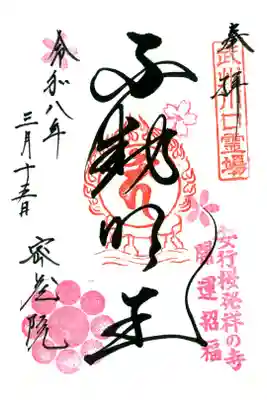 奉拝
武州川口霊場
不動明王
安行桜発祥の寺
開運招福
令和八年
三月十五日
密蔵院